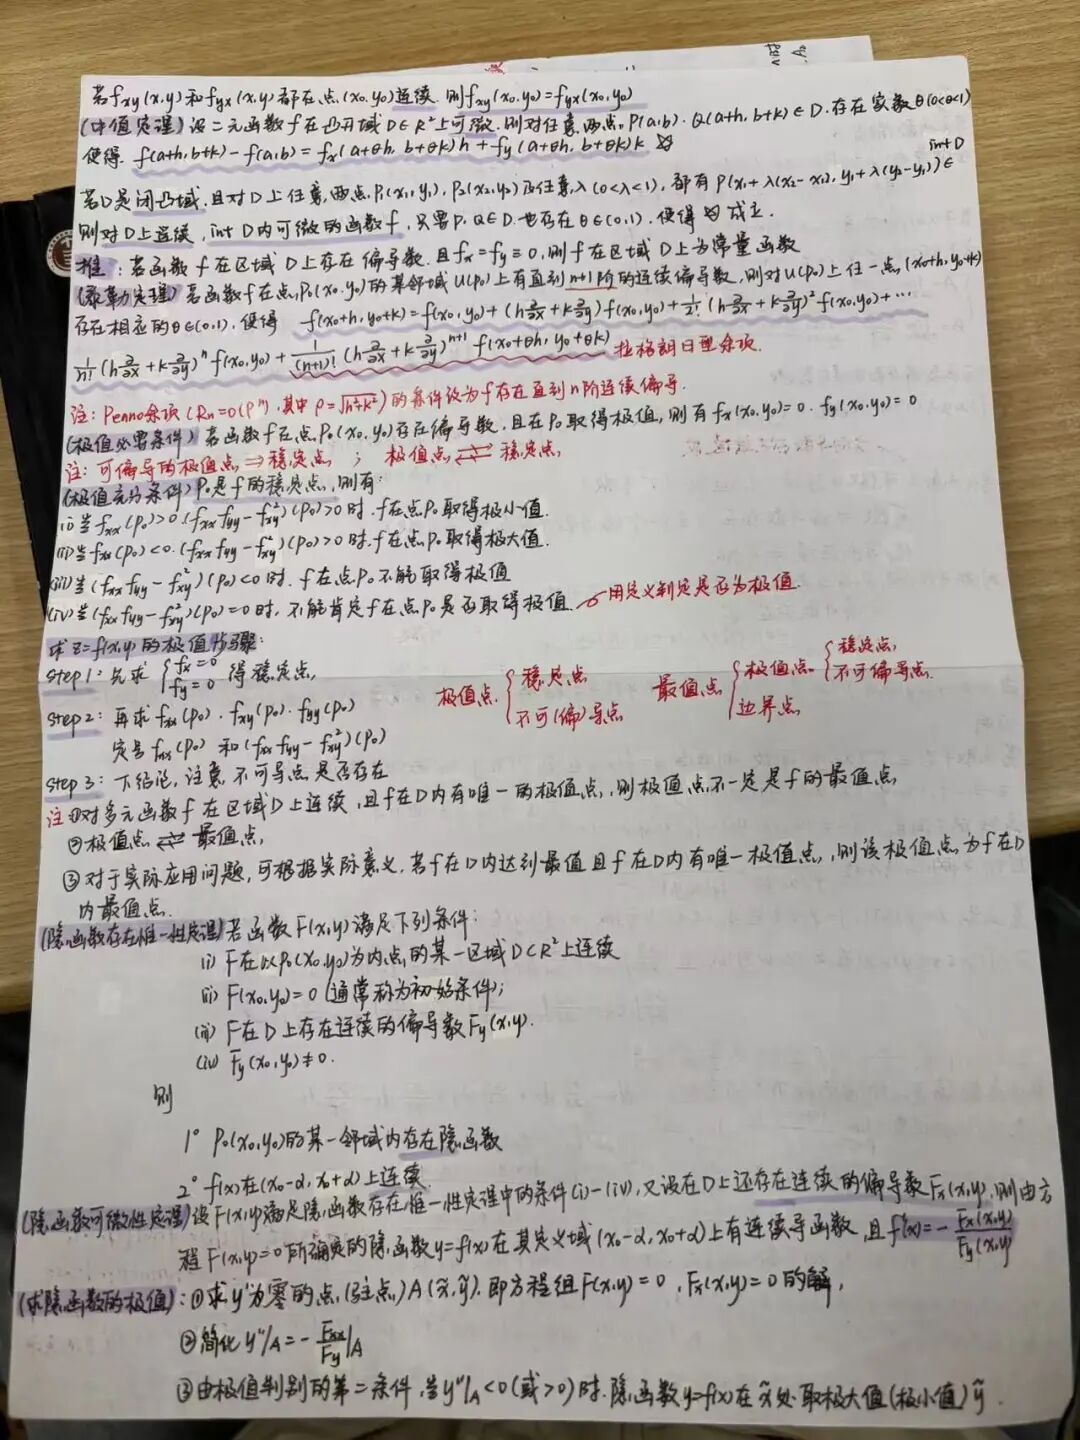 若fxy(x,y)和fyx(x,y)都在点(x0,y0)连续.则fxy(x0,y0)=fyx(x0,y0)
(中值定理)设二元函数f在凸开域D∈R²上可微.则对任意两点P(a,b).Q(a+h,b+k)∈D.存在某数θ(0<θ<1)
使得.f(a+h,b+k)-f(a,b)=fx(a+θh,b+θk)h+fy(a+θh,b+θk)k ☆
若D是闭凸域.且对D上任意两点P1(x1,y1),P2(x2,y2)及任意λ(0<λ<1),都有P(x1+λ(x2-x1),y1+λ(y2-y1))∈int D
则对D上连续,int D内可微的函数f,只要P,Q∈D.也存在θ∈(0,1).使得☆成立.
推:若函数f在区域D上存在偏导数.且fx=fy≡0,则f在区域D上为常量函数
(泰勒定理)若函数f在点P0(x0,y0)的某邻域U(P0)上有直到n+1阶的连续偏导数,则对U(P0)上任一点(x0+h,y0+k)
存在相应的θ∈(0,1).使得 f(x0+h,y0+k)=f(x0,y0)+(h∂/∂x+k∂/∂y)f(x0,y0)+1/2!(h∂/∂x+k∂/∂y)²f(x0,y0)+…
1/n!(h∂/∂x+k∂/∂y)ⁿf(x0,y0)+1/(n+1)!(h∂/∂x+k∂/∂y)ⁿ⁺¹f(x0+θh,y0+θk) 拉格朗日型余项.
注:Penno余项(Rn=o(ρⁿ).其中ρ=√h²+k²)的条件改为f存在直到n阶连续偏导.
(极值必要条件)若函数f在点P0(x0,y0)存在偏导数.且在P0取得极值,则有fx(x0,y0)=0.fy(x0,y0)=0
注:可偏导的极值点⇒稳定点;极值点⇄稳定点
(极值充分条件)P0是f的稳定点,则有:
(i)当fxx(P0)>0.(fxxfyy-fxy²)(P0)>0时.f在点P0取得极小值.
(ii)当fxx(P0)<0.(fxxfyy-fxy²)(P0)>0时.f在点P0取得极大值.
(iii)当(fxxfyy-fxy²)(P0)<0时.f在点P0不能取得极值
(iv)当(fxxfyy-fxy²)(P0)=0时,不能肯定f在点P0是否取得极值.用定义判定是否为极值.
求z=f(x,y)的极值步骤:
Step1:先求{fx=0 fy=0 得稳定点,
极值点{稳定点 不可(偏)导点
最值点{极值点{稳定点 不可偏导点 边界点
Step2:再求fxx(P0).fxy(P0).fyy(P0)
定号fxx(P0)和(fxxfyy-fxy²)(P0)
Step3:下结论,注意不可导点是否存在
注①对多元函数f在区域D上连续,且f在D内有唯一的极值点,则极值点不一定是f的最值点
②极值点⇄最值点,
③对于实际应用问题,可根据实际意义.若f在D内达到最值且f在D内有唯一极值点,则该极值点为f在D
内最值点.
(隐函数存在惟一性定理)若函数F(x,y)满足下列条件:
(i)F在以P0(x0,y0)为内点的某一区域D⊂R²上连续
(ii)F(x0,y0)=0(通常称为初始条件);
(iii)F在D上存在连续的偏导数Fy(x,y).
(iv)Fy(x0,y0)≠0.
则
1°P0(x0,y0)的某一邻域内存在隐函数
2°f(x)在(x0-α,x0+α)上连续.
(隐函数可微性定理)设F(x,y)满足隐函数存在惟一性定理中的条件(i)-(iv),又设在D上还存在连续的偏导数Fx(x,y),则由方
程F(x,y)=0所确定的隐函数y=f(x)在其定义域(x0-α,x0+α)上有连续导函数,且f'(x)=-Fx(x,y)/Fy(x,y)
(求隐函数的极值):①求y'为零的点(驻点)A(x̃,ỹ).即方程组F(x,y)=0,Fx(x,y)=0的解,
②简化y''|A=-Fxx/Fy|A
③由极值判别的第二条件,当y''|A<0(或>0)时.隐函数y=f(x)在x̃处取极大值(极小值)ỹ.